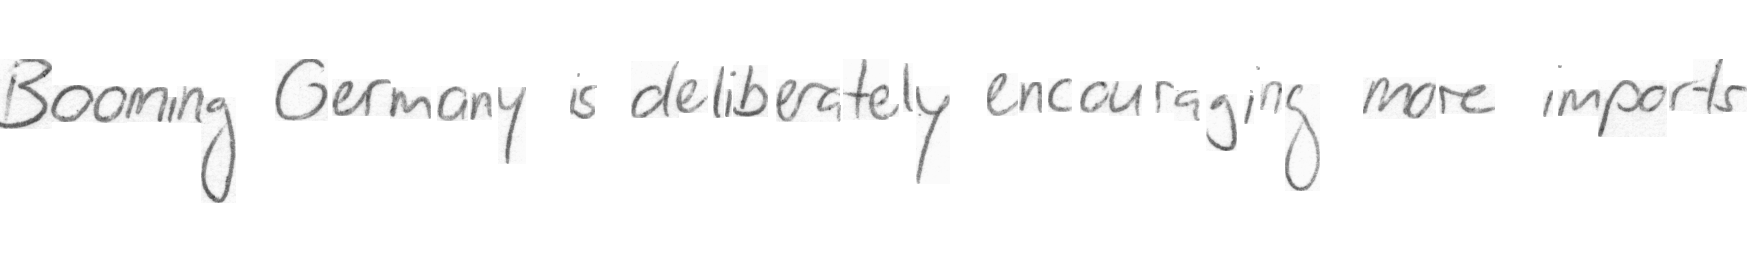 Booming Germany is deliberately encouraging more imports